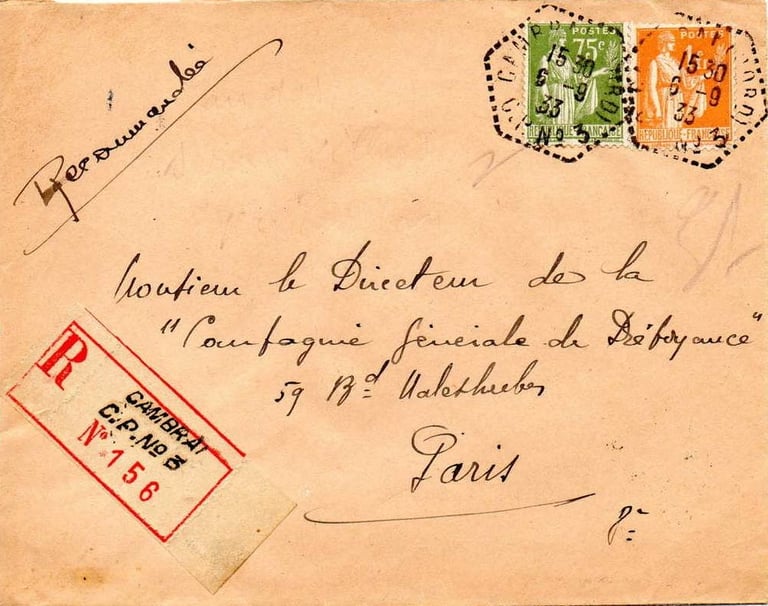 Recommandé
POSTES
75c
REPUBLIQUE FRANÇAISE
POSTES
REPUBLIQUE FRANÇAISE
CAMBRAI (NORD)
C.P. No 3
15 30
6 -9
33
CAMBRAI (NORD)
C.P. No 3
15 30
6 -9
33
Monsieur le Directeur de la
"Compagnie Générale de Prévoyance"
59 Bd Malesherbes
Paris
R
CAMBRAI
C.P. No 3
No 156